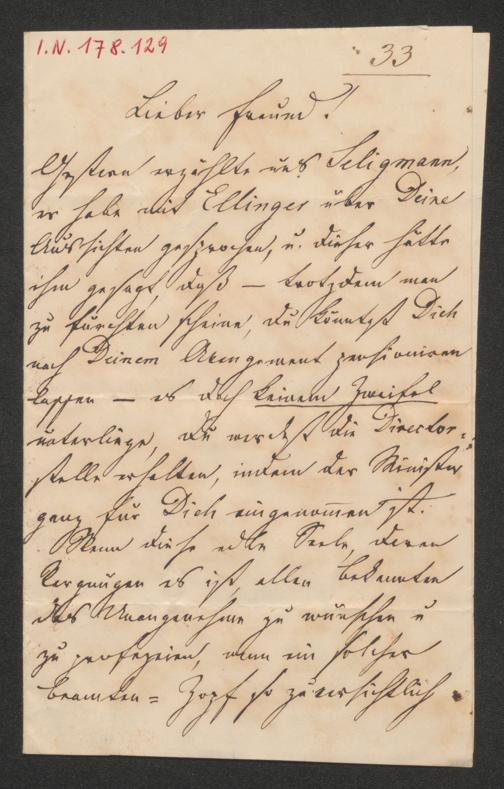 I.N. 178.129
33
Lieber Freund!
Gestern erzählte uns Seligmann,
er habe mit Ellinger über Deine
Aussichten gesprochen, u. dieser hätte
ihm gesagt, daß — trotzdem man
zu fürchten scheine, du könntest Dich
nach Deinem Avengement pensioniren
lassen — es doch keinem Zweifel
unterliege, du werdest die Director-
stelle erhalten, indem der Minister
ganz für Dich eingenommen ist.
Wenn diese edle Seele, deren
Vergnügen es ist, allen Bekannten
das Unangenehme zu wünschen u
zu profezeien, wenn ein solcher
Beamten= Zopf so zuversichtlich